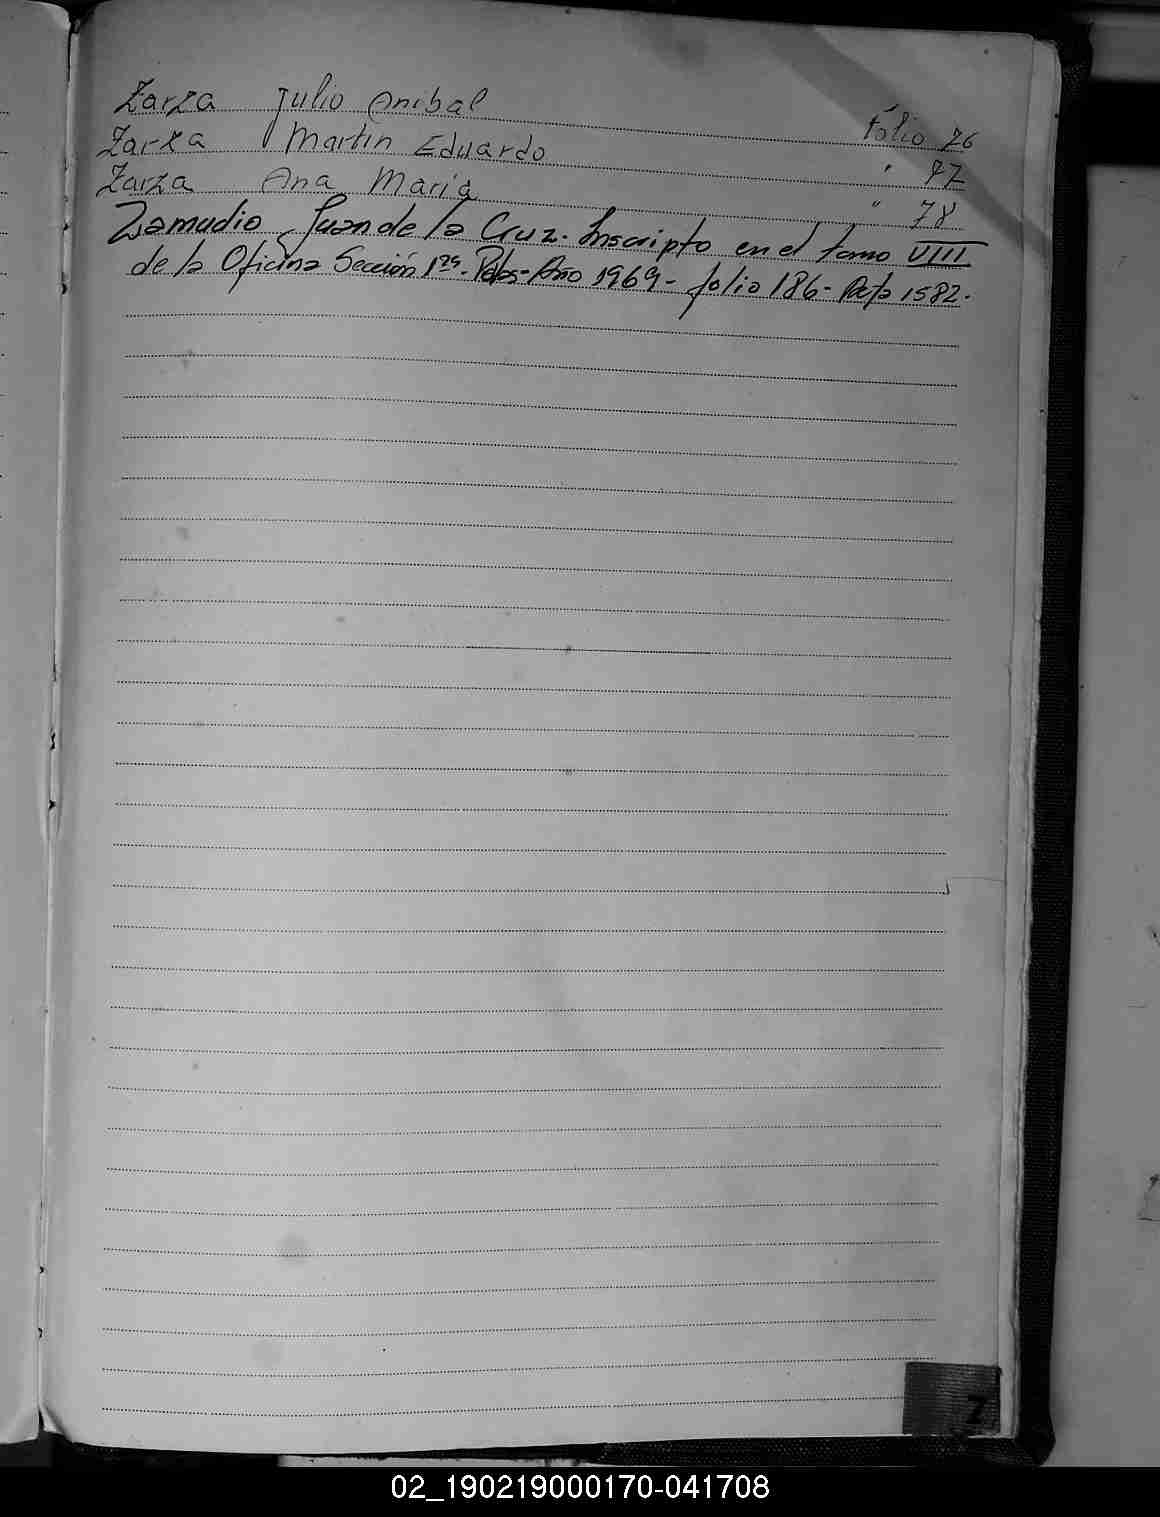 Zarza Julio Anibal Folio 76
Zarza Martin Eduardo " 77
Zarza Ana Maria " 78
Zamudio Juan de la Cruz. Inscripto en el tomo VIII
de la Oficina Sección 1ra. Pdas- Año 1969- folio 186- Acta 1582.
Z
02_190219000170-041708